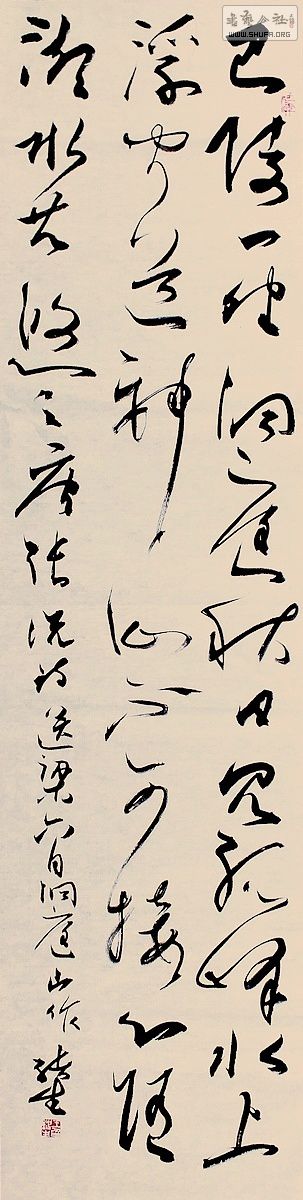 書藝公社
WWW.SHUFA.ORG
巴陵一望洞庭秋日見孤峰水上
浮聞道神仙不可接心隨
湖水共悠々唐張説詩送梁六自洞庭山作